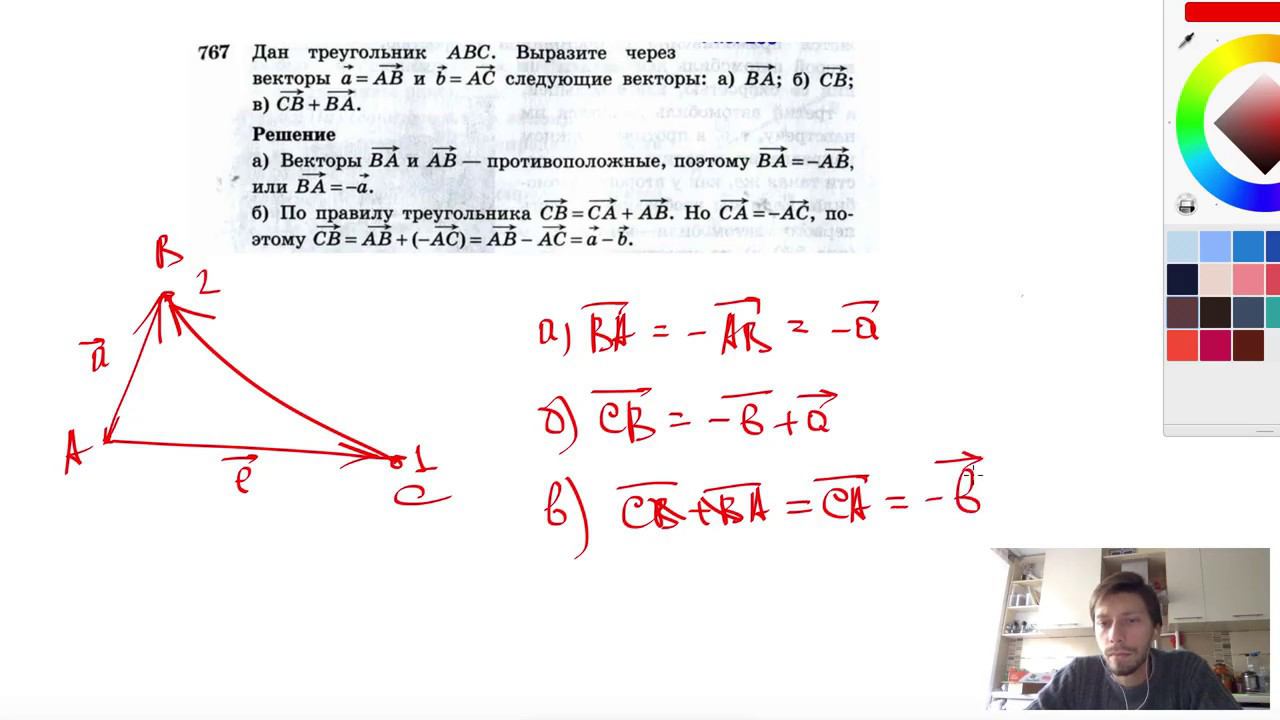 767 Дан треугольник ABC. Выразите через
векторы a⃗ = AB⃗ и b⃗ = AC⃗ следующие векторы: а) BA⃗; б) CB⃗;
в) CB⃗ + BA⃗.
Решение
а) Векторы BA⃗ и AB⃗ — противоположные, поэтому BA⃗ = −AB⃗,
или BA⃗ = −a⃗.
б) По правилу треугольника CB⃗ = CA⃗ + AB⃗. Но CA⃗ = −AC⃗, по-
этому CB⃗ = AB⃗ + (−AC⃗) = AB⃗ − AC⃗ = a⃗ − b⃗.
B
2
a⃗
A
в⃗
1
C
а) BA⃗ = −AB⃗ = −a⃗
б) CB⃗ = −в⃗ + a⃗
в) CB⃗ + BA⃗ = CA⃗ = −в⃗